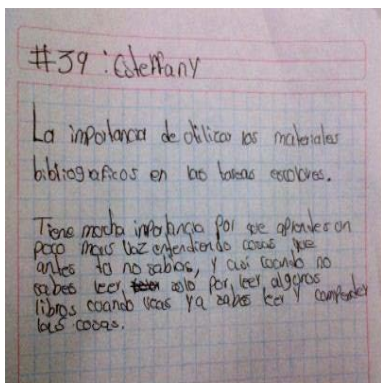 #39 : Esteffany
La importancia de utilizar los materiales
bibliograficos en las tareas escolares.
Tiene mucha importancia Por que aprendes un
poco mas vaz entendiendo cosas que
antes tu no sabias, y asi cuando no
sabes leer, solo por leer algunos
libros cuando veas ya sabes leer y comprender
las cosas.